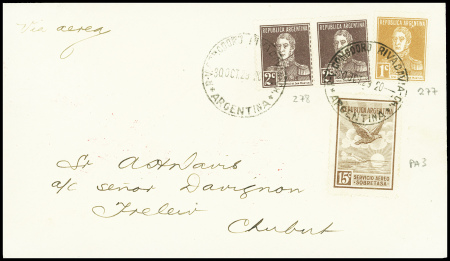 Via aerea
REPUBLICA ARGENTINA
2c
REPUBLICA ARGENTINA
REPUBLICA ARGENTINA
1c
RIVADAVIA
30 OCT. 29 20
ARGENTINA
RIVADAVIA
ARGENTINA
278
277
REPUBLICA ARGENTINA
15c
SERVICIO AEREO
SOBRETASA
PA3
Sr
a/c señor Davignon
Trelew
Chubut